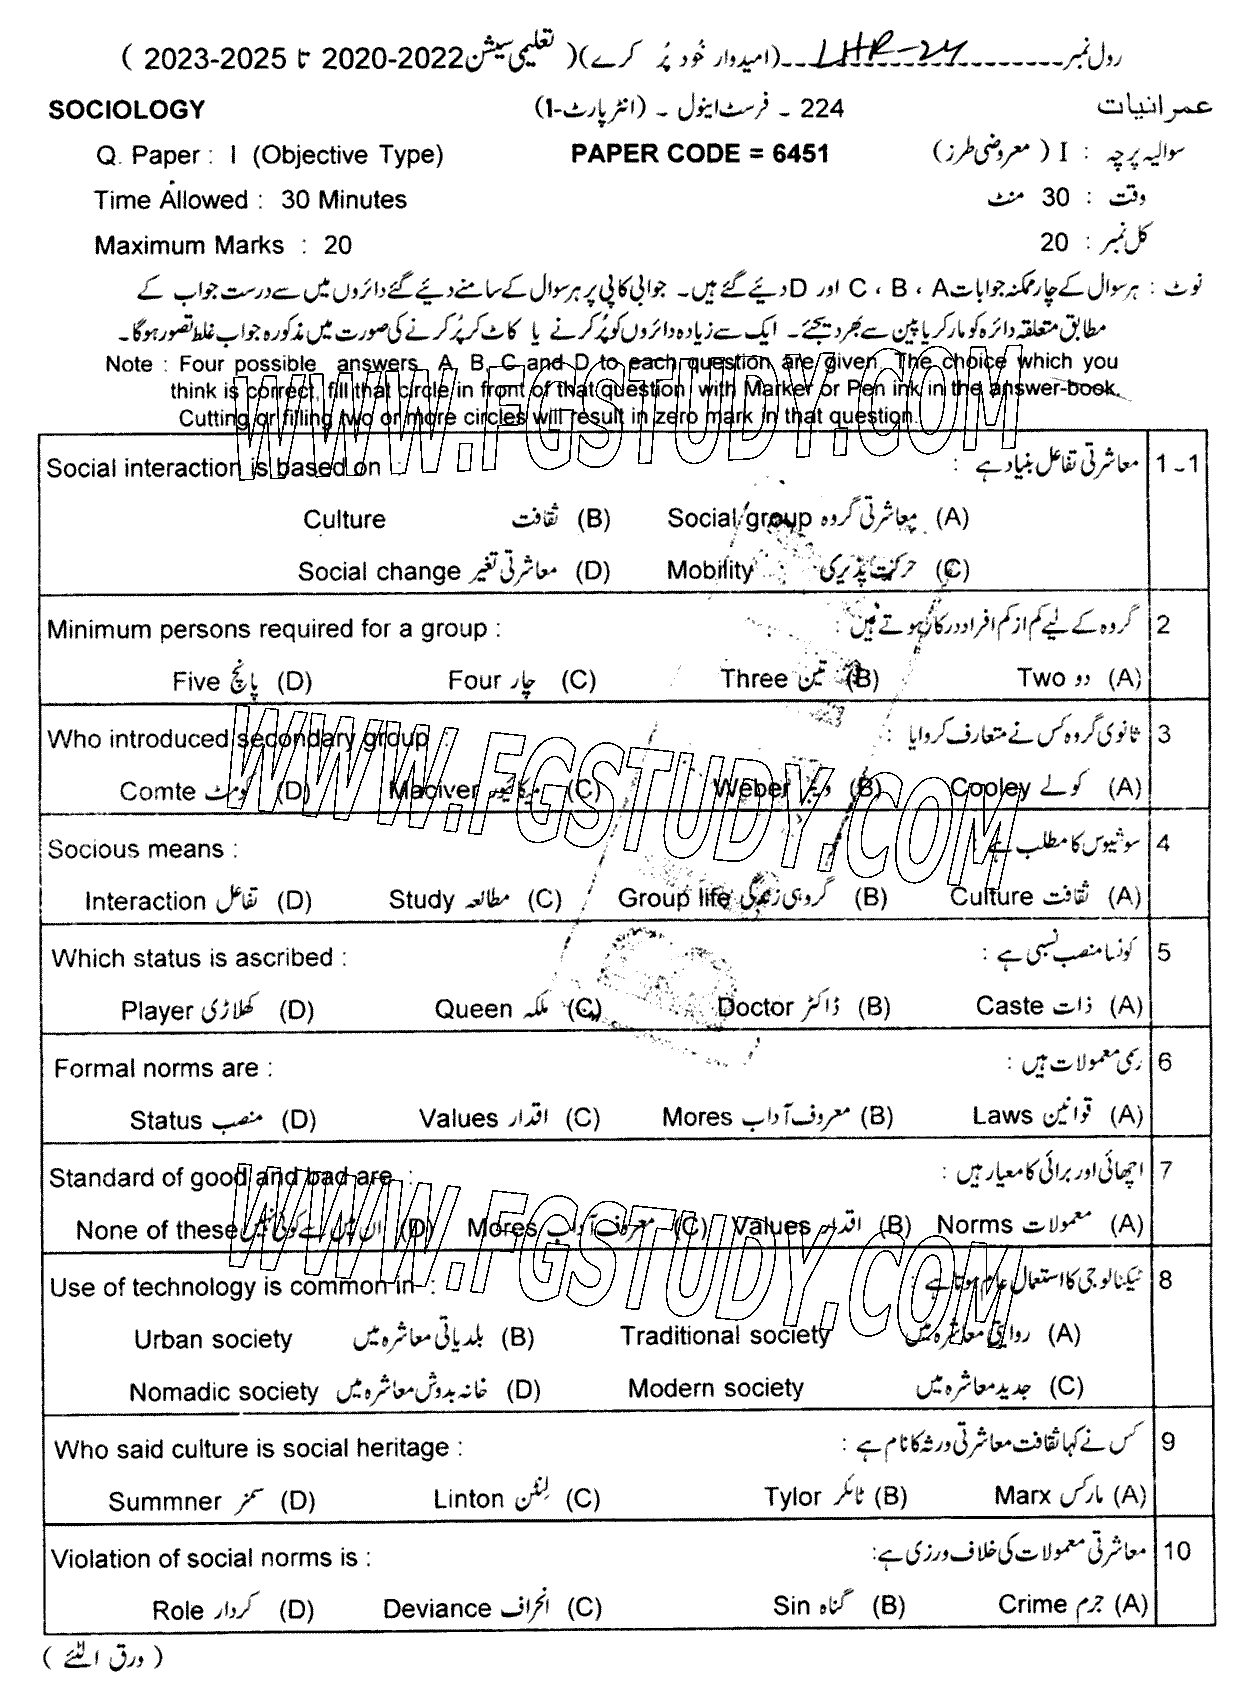 رول نمبر ـــ LHR-24 ـــ (امیدوار خُود پُر کرے) ( تعلیمی سیشن 2022-2020 تا 2025-2023 )
SOCIOLOGY 224 ـ فرسٹ اینول ـ (انٹر پارٹ-I) عمرانیات
Q. Paper : I (Objective Type) PAPER CODE = 6451 سوالیہ پرچہ : I ( معروضی طرز )
Time Allowed : 30 Minutes وقت : 30 منٹ
Maximum Marks : 20 کل نمبر : 20
نوٹ : ہر سوال کے چار ممکنہ جوابات A ، B ، C اور D دیئے گئے ہیں۔ جوابی کاپی پر ہر سوال کے سامنے دیئے گئے دائروں میں سے درست جواب کے
مطابق متعلقہ دائرہ کو مارکر یا پین سے بھر دیجئے۔ ایک سے زیادہ دائروں کو پُر کرنے یا کاٹ کر پُر کرنے کی صورت میں مذکورہ جواب غلط تصور ہوگا۔
Note : Four possible answers A, B, C and D to each question are given. The choice which you
think is correct, fill that circle in front of that question with Marker or Pen ink in the answer-book.
Cutting or filling two or more circles will result in zero mark in that question.
WWW.FGSTUDY.COM
Social interaction is based on : معاشرتی تفاعل بنیاد ہے : 1ـ1
Culture ثقافت (B) Social group معاشرتی گروہ (A)
Social change معاشرتی تغیر (D) Mobility حرکت پذیری (C)
Minimum persons required for a group : گروہ کے لیے کم از کم افراد درکار ہوتے ہیں : 2
Five پانچ (D) Four چار (C) Three تین (B) Two دو (A)
WWW.FGSTUDY.COM
Who introduced secondary group : ثانوی گروہ کس نے متعارف کروایا : 3
Comte کومٹ (D) Maciver میکائیور (C) Weber ویبر (B) Cooley کولے (A)
Socious means : سوشیوس کا مطلب ہے : 4
Interaction تفاعل (D) Study مطالعہ (C) Group life گروہی زندگی (B) Culture ثقافت (A)
Which status is ascribed : کونسا منصب نسبی ہے : 5
Player کھلاڑی (D) Queen ملکہ (C) Doctor ڈاکٹر (B) Caste ذات (A)
Formal norms are : رسمی معمولات ہیں : 6
Status منصب (D) Values اقدار (C) Mores معروف آداب (B) Laws قوانین (A)
WWW.FGSTUDY.COM
Standard of good and bad are : اچھائی اور برائی کا معیار ہیں : 7
None of these ان میں سے کوئی نہیں (D) Mores معروف آداب (C) Values اقدار (B) Norms معمولات (A)
Use of technology is common in : ٹیکنالوجی کا استعمال عام ہوتا ہے : 8
Urban society بلدیاتی معاشرہ میں (B) Traditional society روایتی معاشرہ میں (A)
Nomadic society خانہ بدوش معاشرہ میں (D) Modern society جدید معاشرہ میں (C)
Who said culture is social heritage : کس نے کہا ثقافت معاشرتی ورثہ کا نام ہے : 9
Summner سمنر (D) Linton لنٹن (C) Tylor ٹائلر (B) Marx مارکس (A)
Violation of social norms is : معاشرتی معمولات کی خلاف ورزی ہے: 10
Role کردار (D) Deviance انحراف (C) Sin گناہ (B) Crime جرم (A)
( ورق الٹئے )